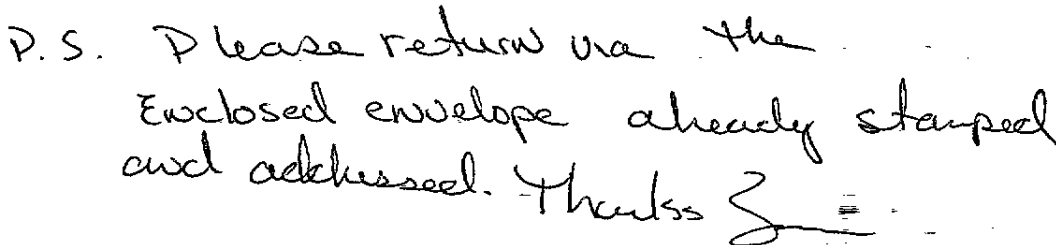 P.S. Please return via the
Enclosed envelope already stamped
and addressed. Thanks